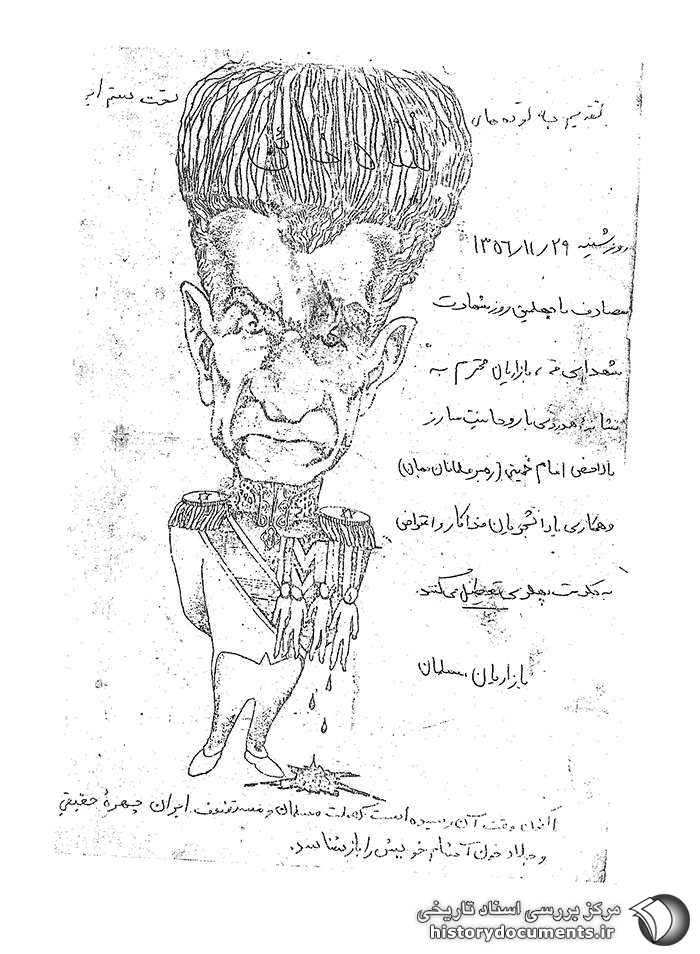 تقدیم به توده های تحت ستم ایر
شاه خائن
روز شنبه ۱۳۵۶/۱۱/۲۹
مصادف با چهلمین روز شهادت
شهدای قم، بازاریان محترم به
نشانه همدردی با روحانیت مبارز
بالاخص امام خمینی (رهبر مسلمانان جهان)
و همکاری با دانشجویان فداکار و اعتراض
به حکومت پهلوی تعطیل می کنند.
بازاریان مسلمان
اکنون وقت آن رسیده است که ملت مسلمان و مستضعف ایران چهرهٔ حقیقی
و جلاد خون آشام خویش را باز شناسد.
مرکز بررسی اسناد تاریخی
historydocuments.ir